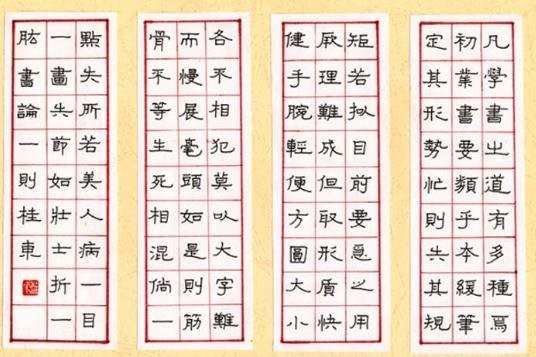 凡學書之道有多種焉
初業書要頻乎本緩筆
定其形勢忙則失其規
矩若拟目前要急之用
厥理難成但取形質快
健手腕輕便方圓大小
各不相犯莫以大字難
而慢展毫頭如是則筋
骨不等生死相混倘一
點失所若美人病一目
一畫失節如壯士折一
肱書論一則桂東